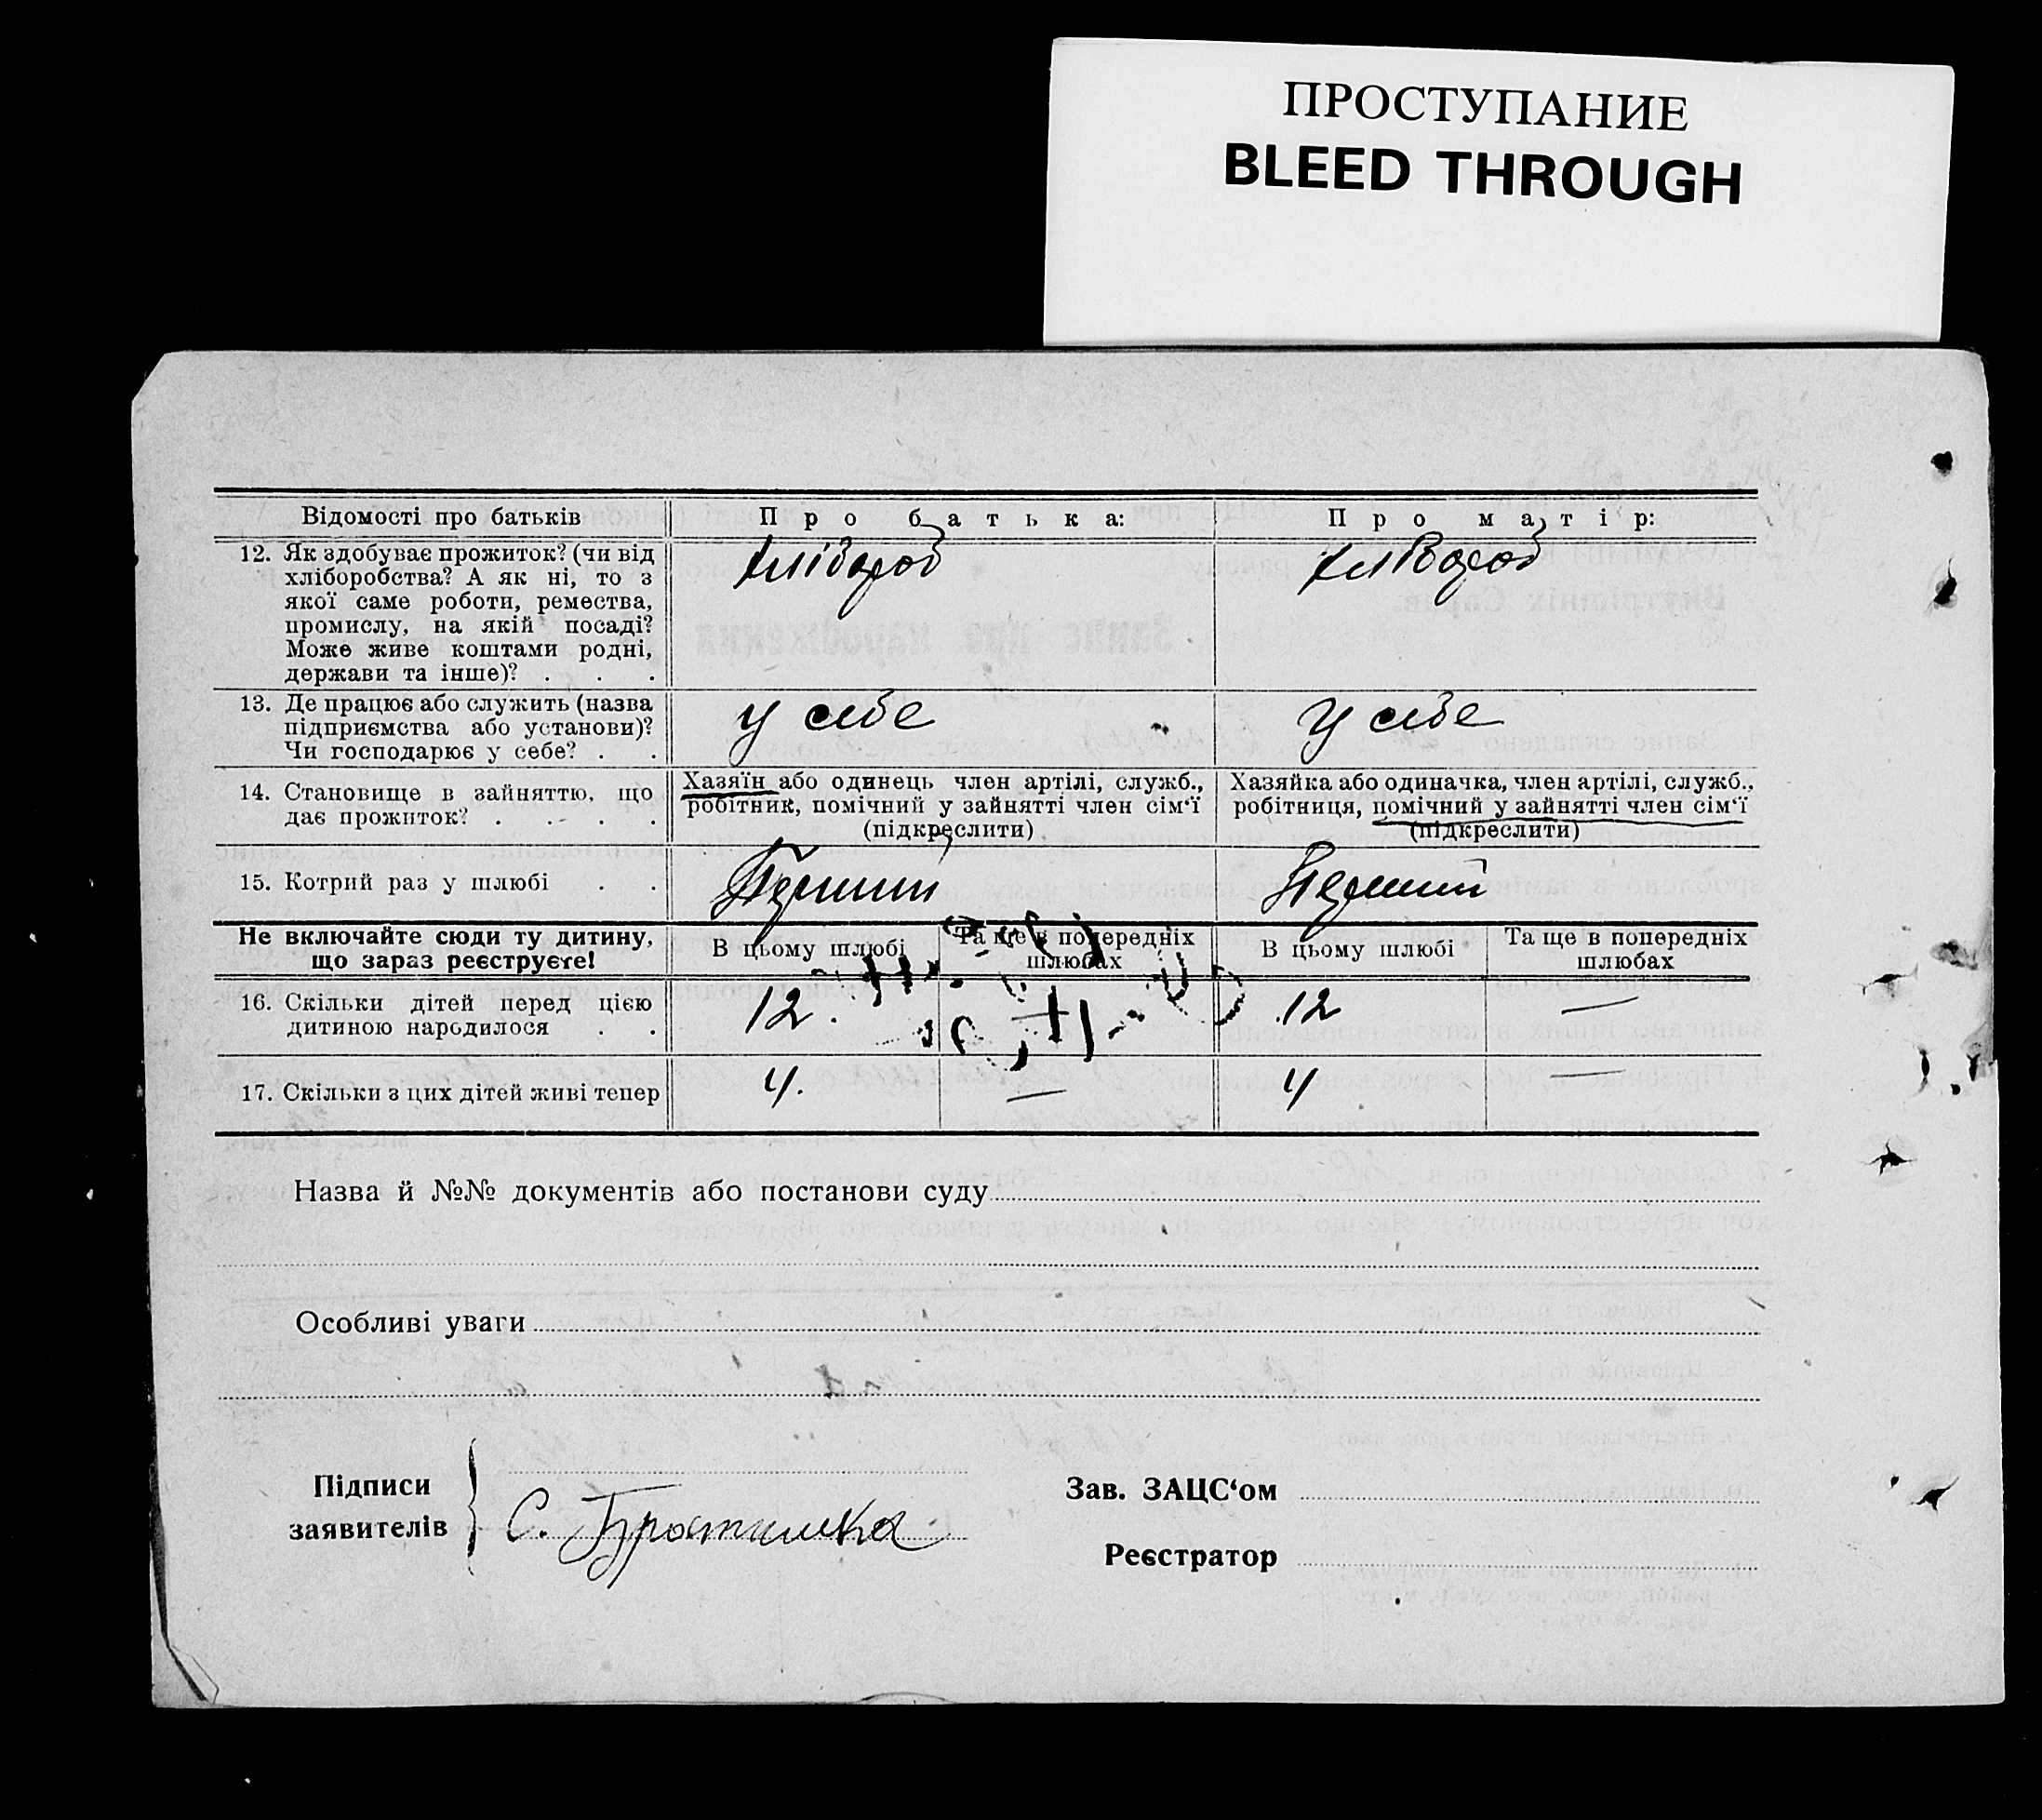 ПРОСТУПАНИЕ
BLEED THROUGH
Відомості про батьків
Про батька:
Про матір:
12. Як здобуває прожиток? (чи від
хліборобства? А як ні, то з
якої саме роботи, ремества,
промислу, на якій посаді?
Може живе коштами родні,
держави та інше)? . . .
хлібороб
хлібороб
13. Де працює або служить (назва
підприємства або установи)?
Чи господарює у себе? . .
у себе
У себе
14. Становище в зайняттю, що
дає прожиток? . . . .
Хазяїн або одинець член артілі, служб.,
робітник, помічний у зайнятті член сім‘ї
(підкреслити)
Хазяйка або одиначка, член артілі, служб.,
робітниця, помічний у зайнятті член сім‘ї
(підкреслити)
15. Котрий раз у шлюбі . .
Перший
Перший
Не включайте сюди ту дитину,
що зараз реєструєте!
В цьому шлюбі
Та ще в попередніх
шлюбах
В цьому шлюбі
Та ще в попередніх
шлюбах
16. Скільки дітей перед цією
дитиною народилося . .
12.
12
—
17. Скільки з цих дітей живі тепер
4.
—
4
—
Назва й №№ документів або постанови суду
Особливі уваги
Підписи
заявителів
С.
Зав. ЗАЦС‘ом
Реєстратор